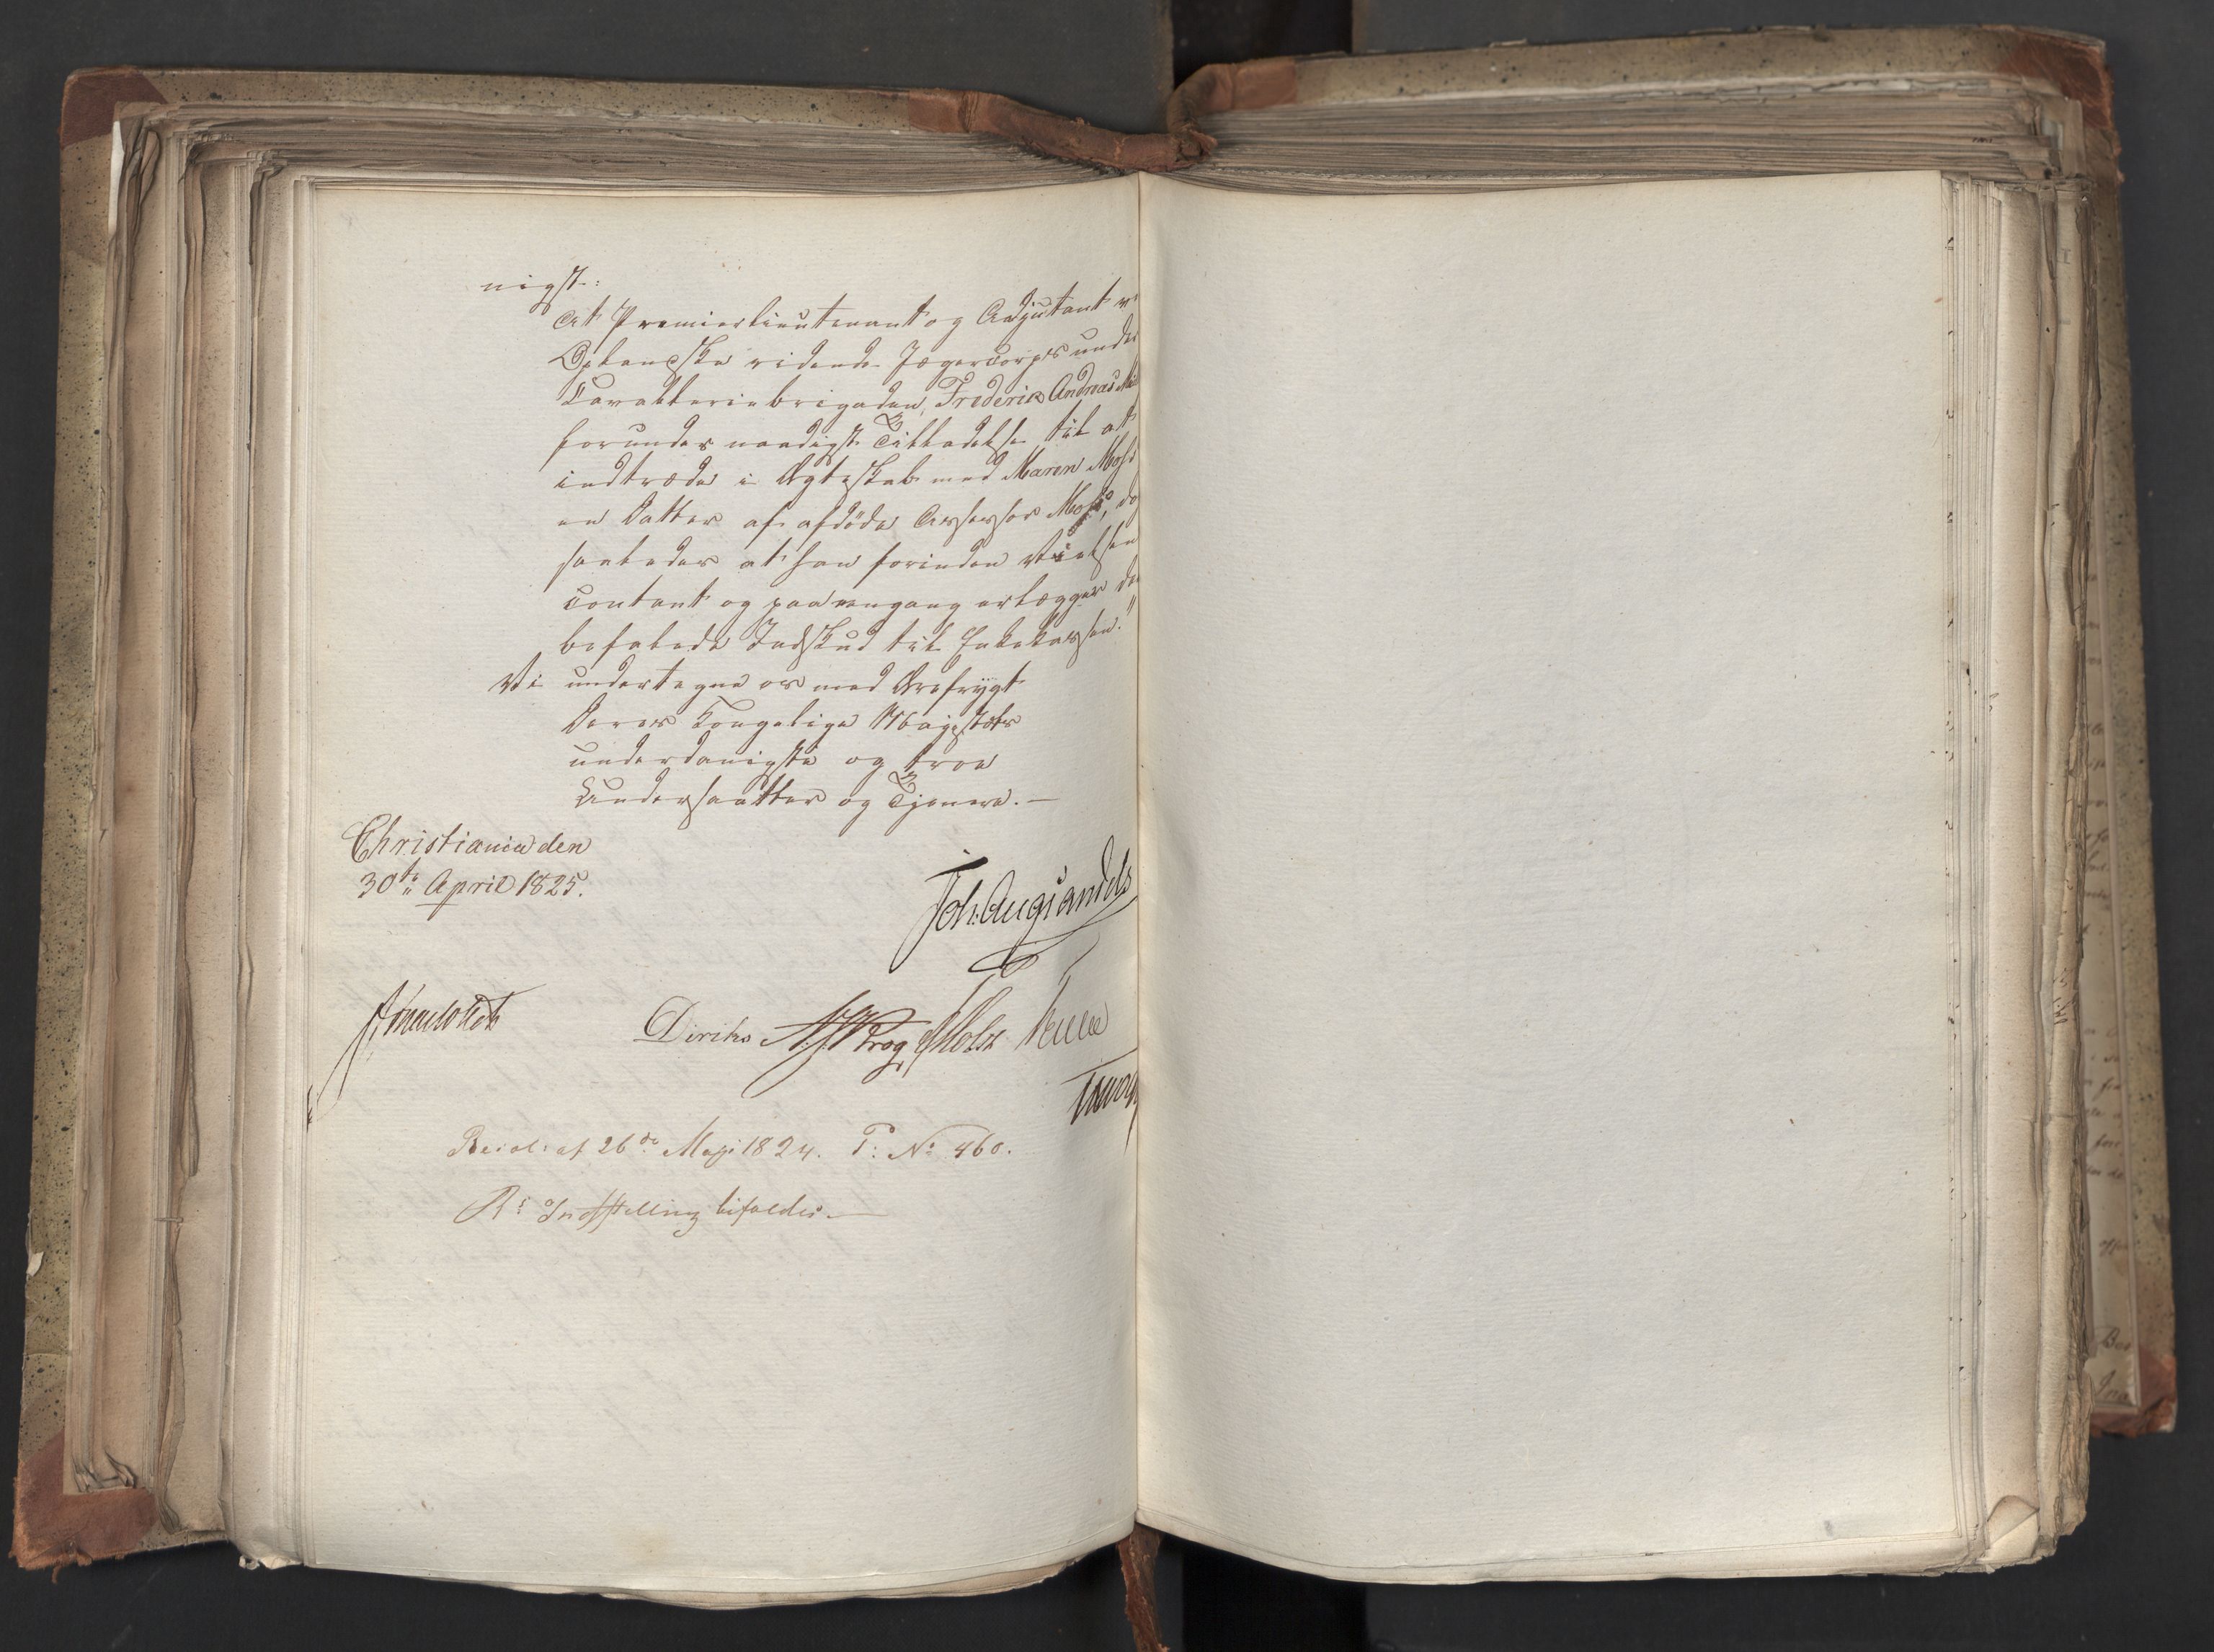 nigst:
at Premierlieutenant og Adjutant v
Oplandske ridende Jægercorps under
Cavalleriebrigaden, Frederik Andreas
forundes naadigst Tilladelse til at
indtræde i Ægteskab med Maren Moss
en Datter af afdöde Assessor Moss, dog
saaledes at han forinden Vielsen
contant og paa eengang erlægger de
befalede Indskud til Enkekassen."
Vi undertegne os med Ærefrygt
Deres Kongelige Majestæts
underdanigste og troe
Undersaatter og Tjenere. —
Christiania den
30te April 1825.
Joh: Aug: Sandels
Diriks Krog
Resol: af 26de Maji 1824. P: No 460.
Rs Indstilling bifaldes. —